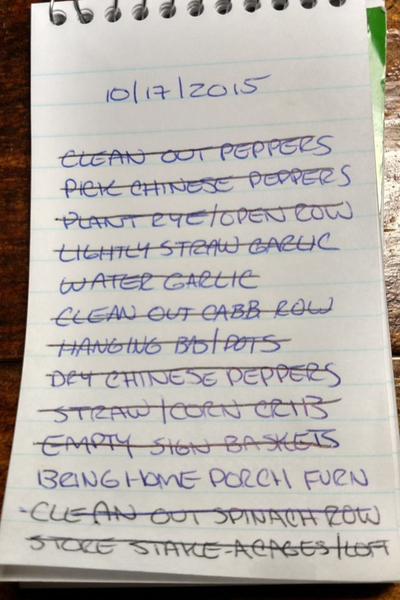 10/17/2015
CLEAN OUT PEPPERS
PICK CHINESE PEPPERS
PLANT RYE/OPEN ROW
LIGHTLY STRAW GARLIC
WATER GARLIC
CLEAN OUT CABB ROW
HANGING BAS/POTS
DRY CHINESE PEPPERS
STRAW/CORN CRIB
EMPTY SIGN BASKETS
BRING HOME PORCH FURN
-CLEAN OUT SPINACH ROW
STORE STAKE-A-CAGES/LOFT